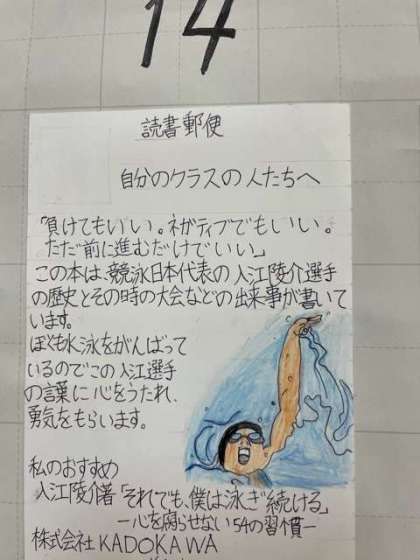 14
読書郵便
自分のクラスの人たちへ
「負けてもいい。ネガティブでもいい。
ただ前に進むだけでいい。」
この本は、競泳日本代表の入江陵介選手
の歴史とその時の大会などの出来事が書いて
います。
ぼくも水泳をがんばって
いるのでこの入江選手
の言葉に心をうたれ、
勇気をもらいます。
私のおすすめ
入江陵介著「それでも、僕は泳ぎ続ける」
―心を腐らせない54の習慣―
株式会社KADOKAWA